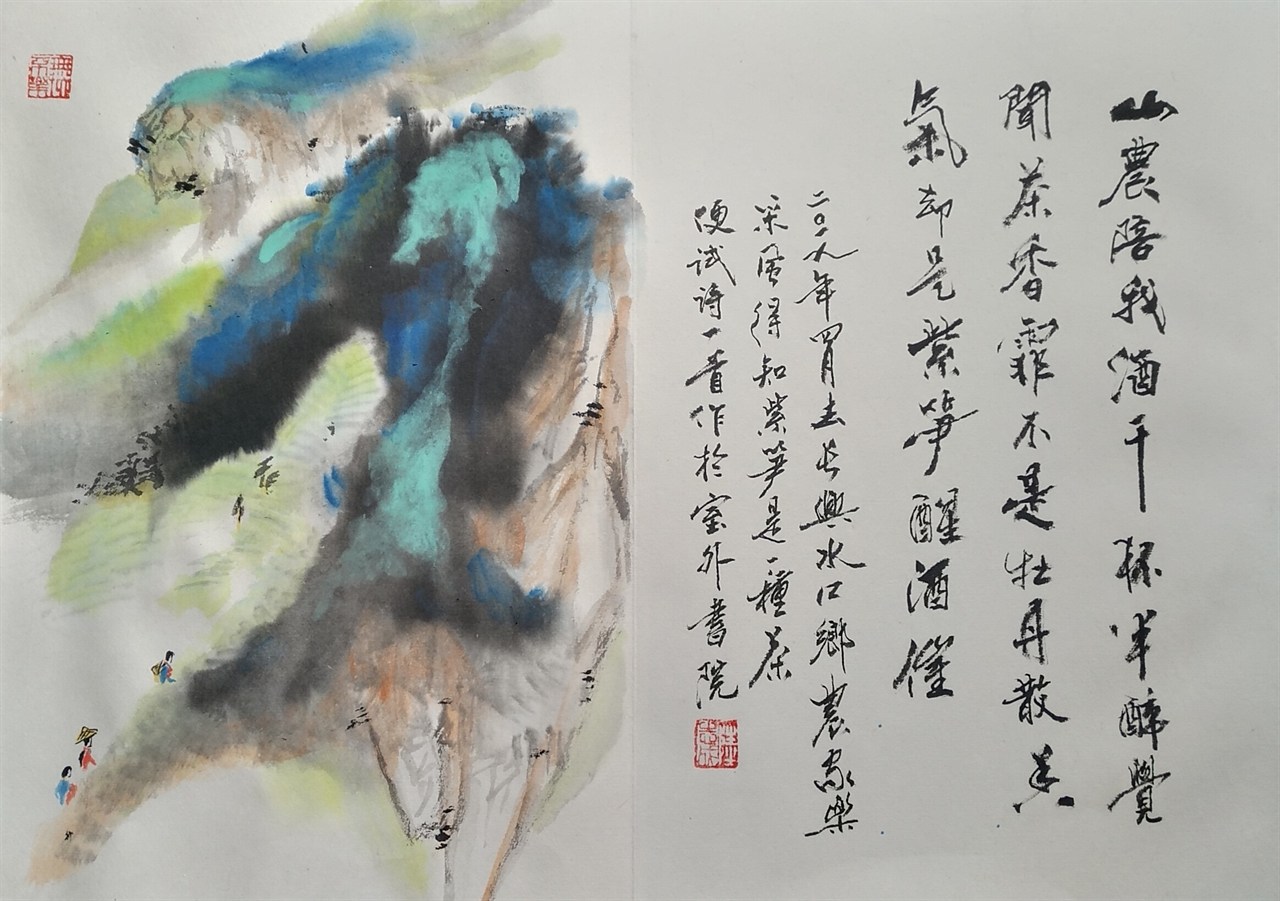 山農陪我酒干杯半醉覺
聞茶香霏不是牡丹散香
氣却是紫笋醒酒催
二〇一九年四月去长興水口鄉農家樂
采風得知紫笋是一種茶
便試詩一首作於室外書院